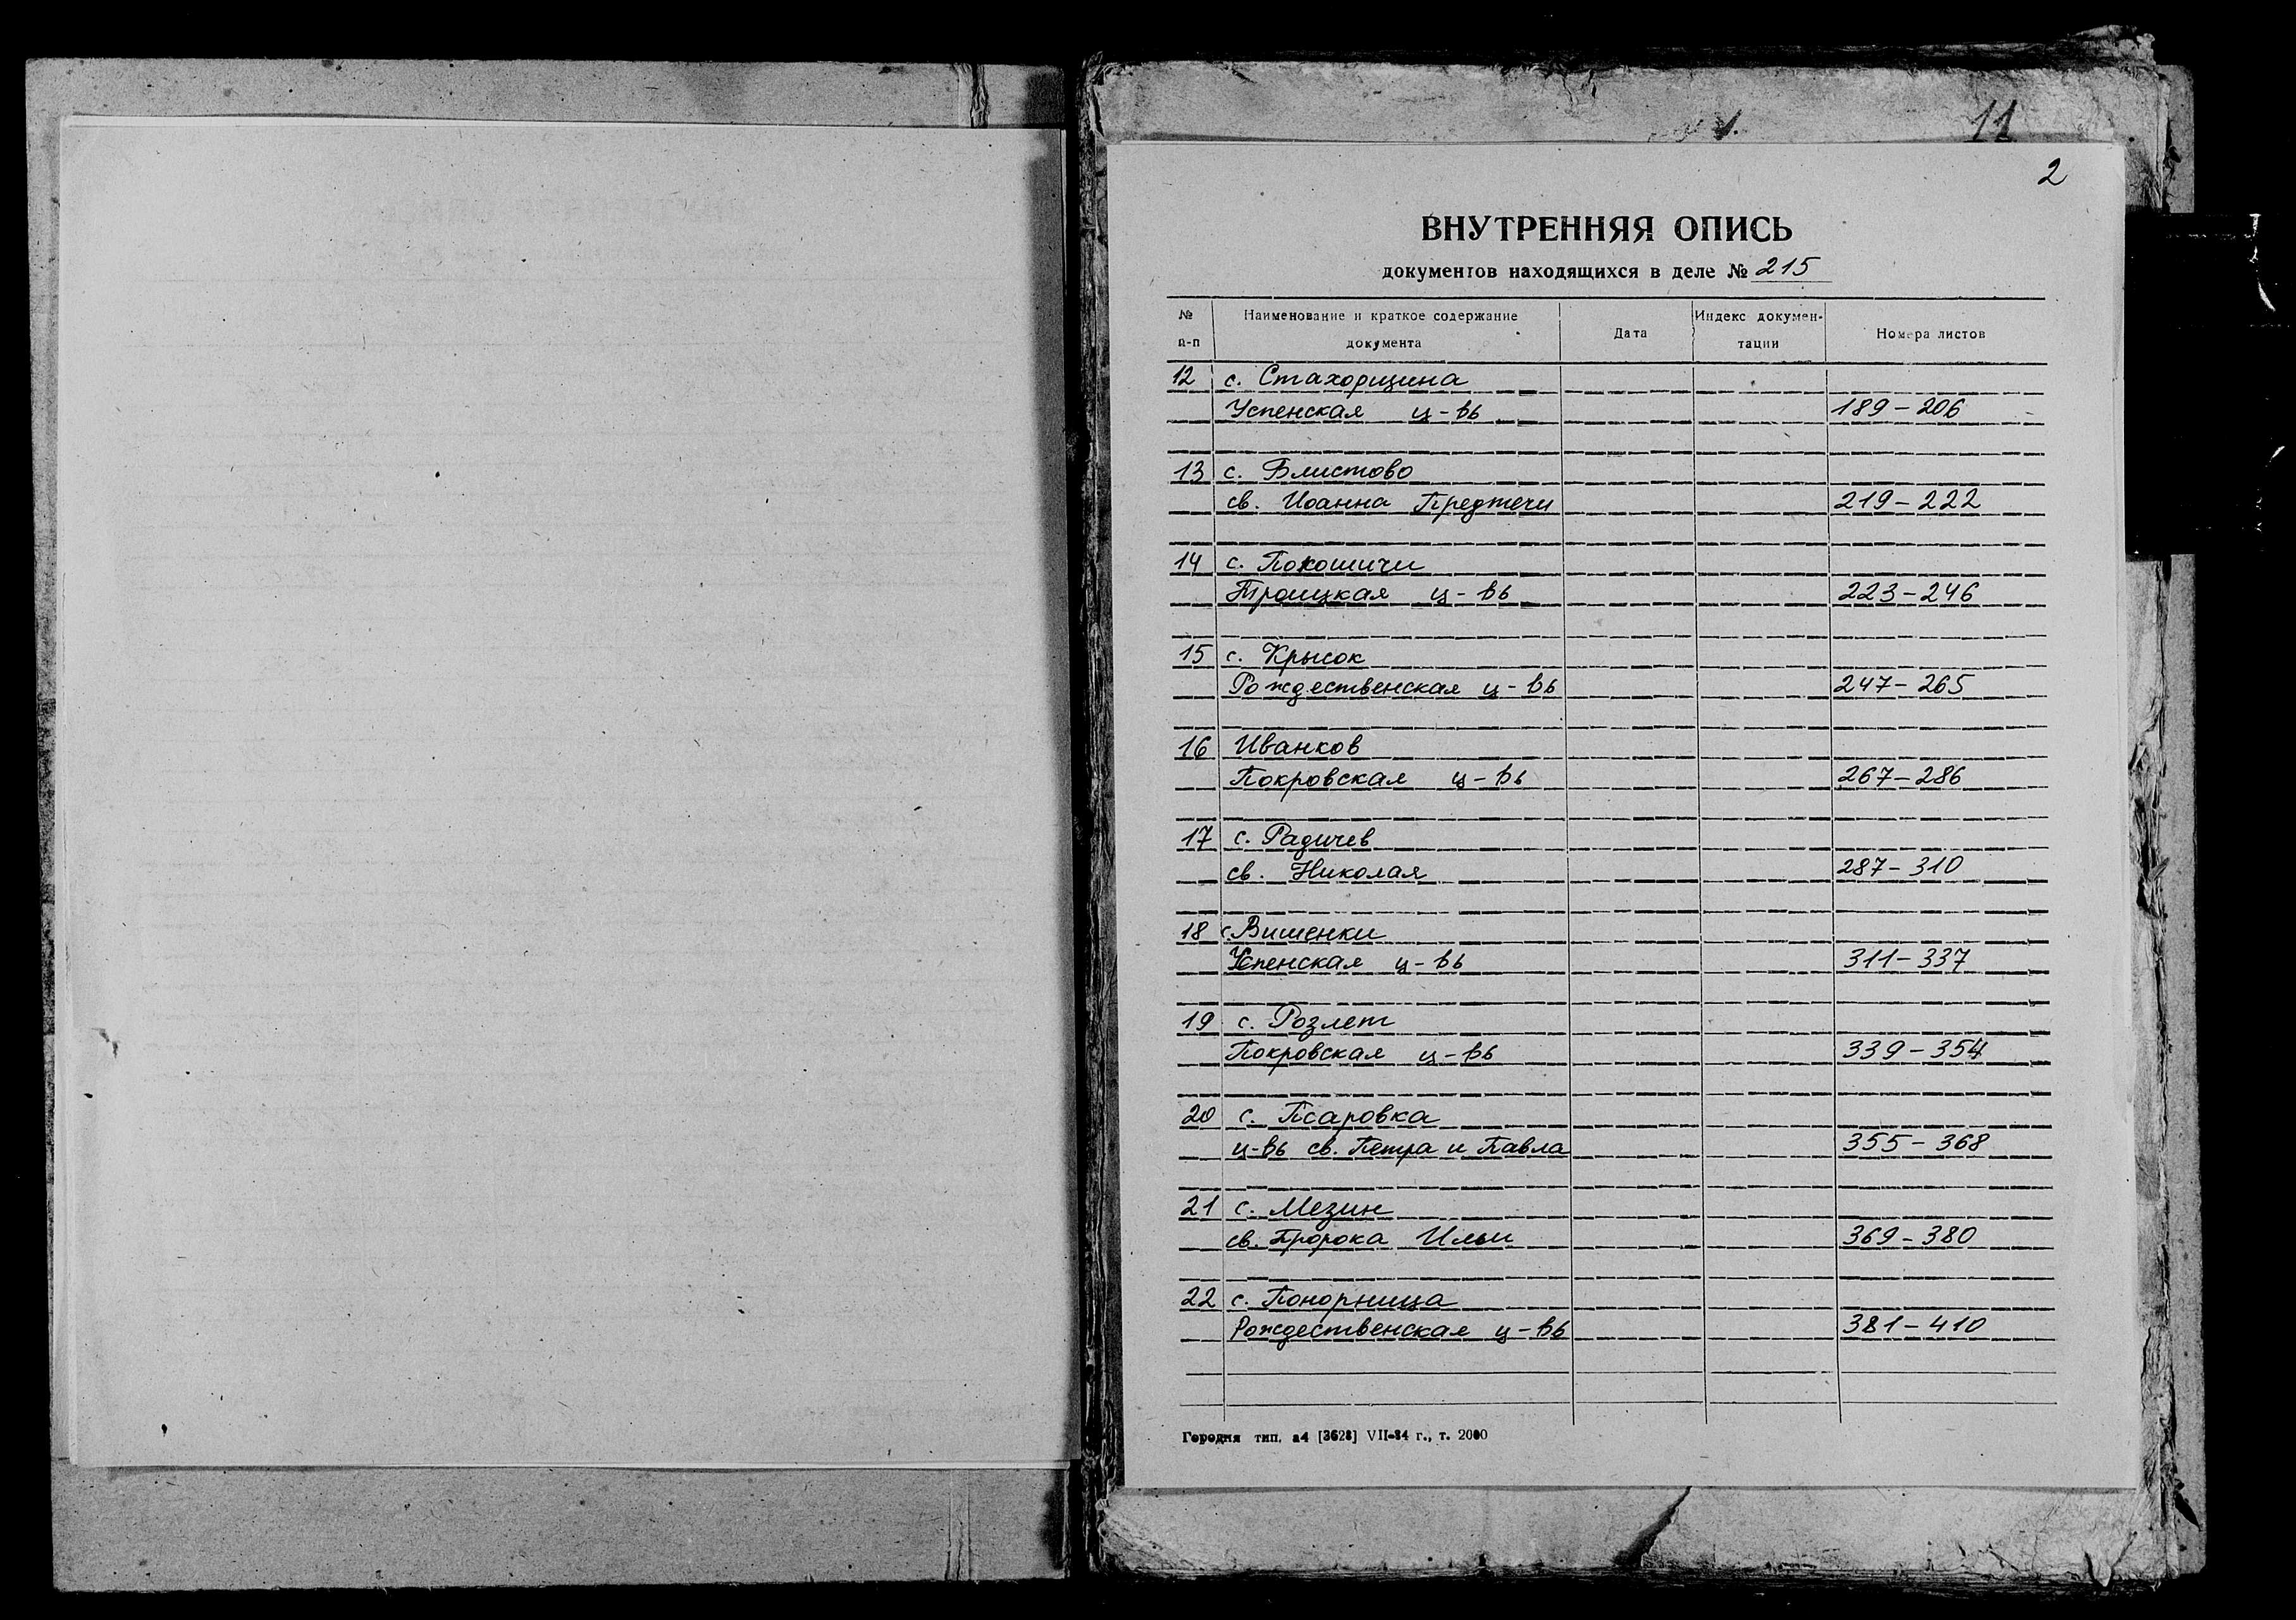 11
2
ВНУТРЕННЯЯ ОПИСЬ
документов находящихся в деле № 215
№ п-п Наименование и краткое содержание документа Дата Индекс документации Номера листов
12 с. Стахорщина
Успенская ц-вь 189-206
13 с. Блистово
св. Иоанна Предтечи 219-222
14 с. Покошичи
Троицкая ц-вь 223-246
15 с. Крысок
Рождественская ц-вь 247-265
16 Иванков
Покровская ц-вь 267-286
17 с. Радичев
св. Николая 287-310
18 с. Вишенки
Успенская ц-вь 311-337
19 с. Розлет
Покровская ц-вь 339-354
20 с. Псаровка
ц-вь св. Петра и Павла 355-368
21 с. Мезин
св. Пророка Ильи 369-380
22 с. Понорница
Рождественская ц-вь 381-410
Городня тип. з4 [3628] VII-84 г., т. 2000